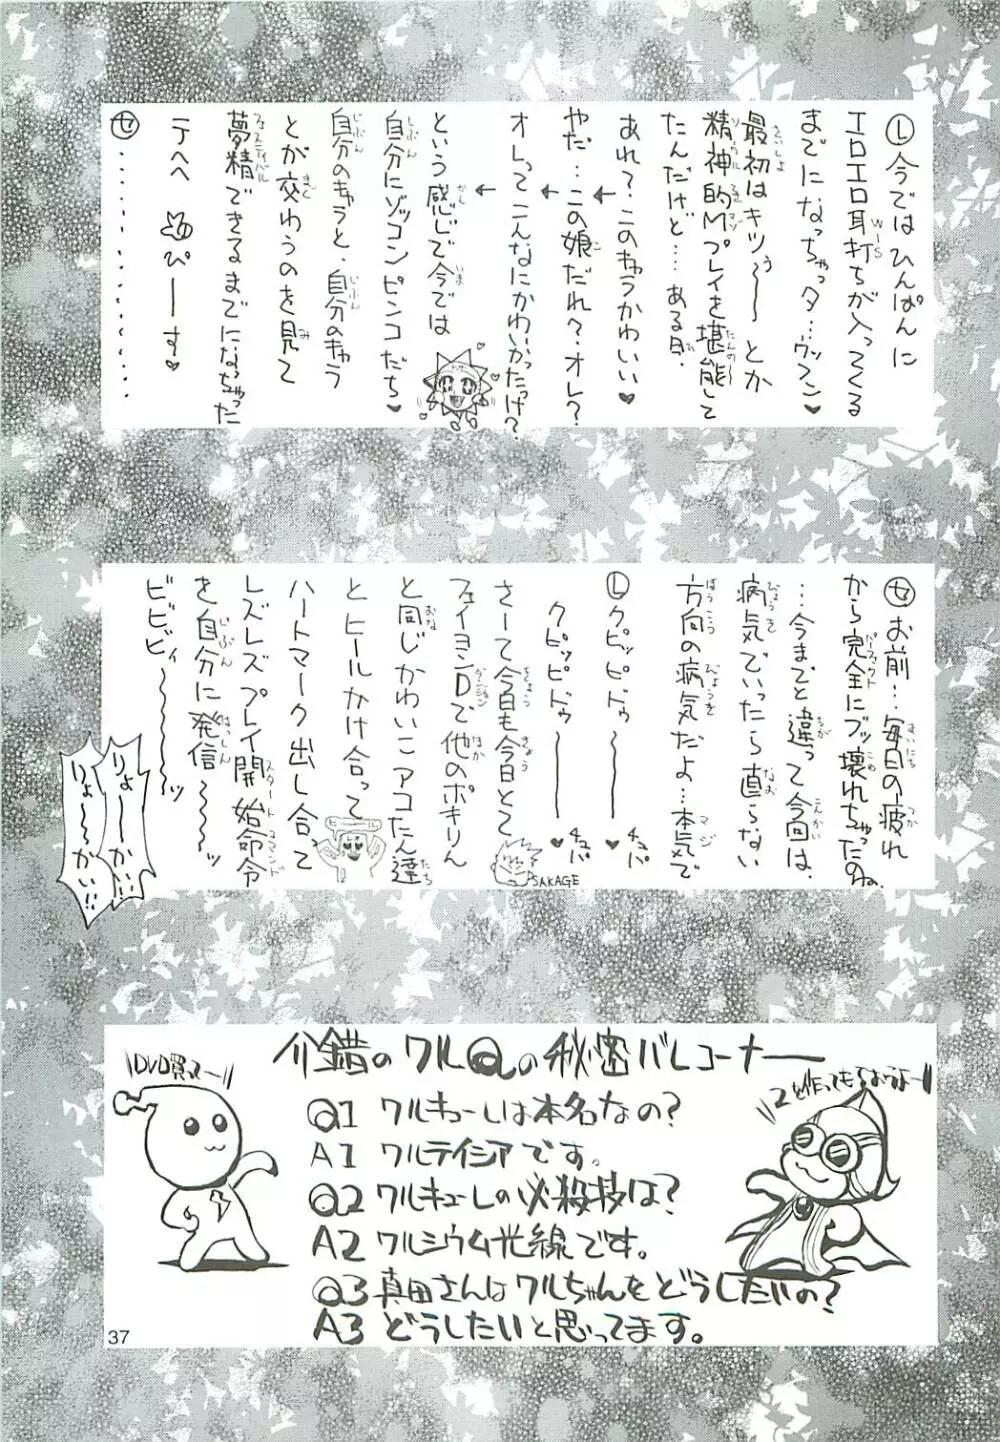 Ⓛ今ではひんぱんに
エロエロ耳打ちが入ってくる
WIS
までになっちゃっタ…ウッフン♥
最初はキツぅ〜〜とか
さいしょ
精神的Mプレイを堪能して
たんだけど…ある日、
あれ?このキャラかわいい♥
↓
やだ…この娘だれ?オレ?
↓
オレってこんなにかわいかったっけ?
↓
という感じで今では
かん いま
自分にゾッコンピンコだち♥
じぶん
自分のキャラと、自分のキャラ
じぶん じぶん
とが交わうのを見て
まじ み
夢精できるまでになっちゃった
フェスティバル
テヘへ ぴーーす♥
㋝……………
㋝お前…毎日の疲れ
まいにち つか
から完全にブッ壊れちゃったのね
パーフェクト こわ
…今までと違って今回は、
ちが
病気でいったら直らない
びょうき なお
方向の病気だよ…本気で
ほうこう びょうき マジ
Ⓛクピッピドゥ〜〜〜♥チュパ
クピッピドゥ〜〜〜♥チュパ
さーて今日も今日とて
きょう きょう
SAKAGE
フェイヨンDで他のポキりん
ダンジョン ほか
と同じかわいこアコたん達
おな たち
とヒールかけ合って
ヒール
ハートマーク出し合って
レズレズプレイ開始命令
スタートコマンド
を自分に発信〜〜〜ッ
じぶん はっしん
ビビビィ〜〜〜〜ッ
りょーーかい!!
りょ〜〜かい!!
介錯のワルQの秘密バレコーナー
DVD買ってー
2も作ってもらおうよー
Q1 ワルキューレは本名なの?
A1 ワルテイシアです。
Q2 ワルキューレの必殺技は?
A2 ワルシウム光線です。
Q3 真田さんはワルちゃんをどうしたいの?
A3 どうしたいと思ってます。
37